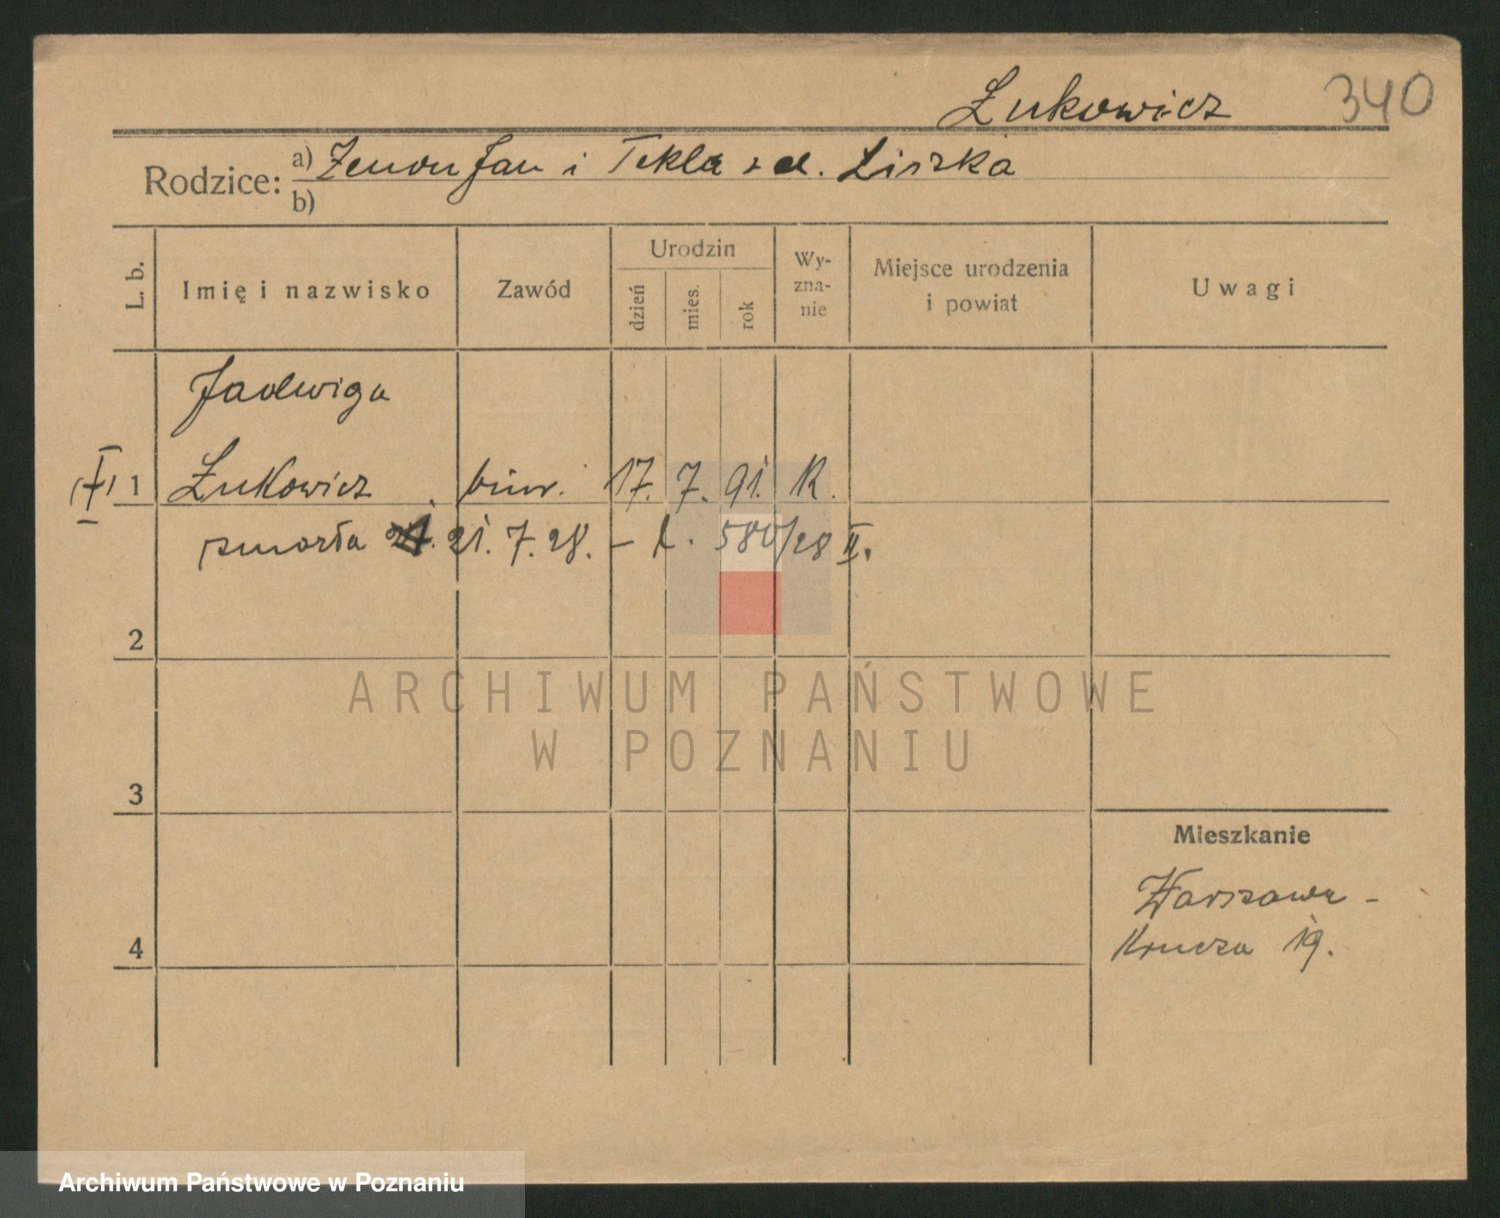 Żukowicz 340
Rodzice: a) Zenon Jan i Tekla z d. Liszka
b)
L. b. Imię i nazwisko Zawód Urodzin dzień mies. rok Wy-zna-nie Miejsce urodzenia i powiat Uwagi
Jadwiga
1 Żukowicz biur. 17. 7. 91. R.
zmarła 21. 7. 28. – L. 580/28 II.
2
ARCHIWUM PAŃSTWOWE
W POZNANIU
3
Mieszkanie
Warszawa -
Krucza 19.
4
Archiwum Państwowe w Poznaniu